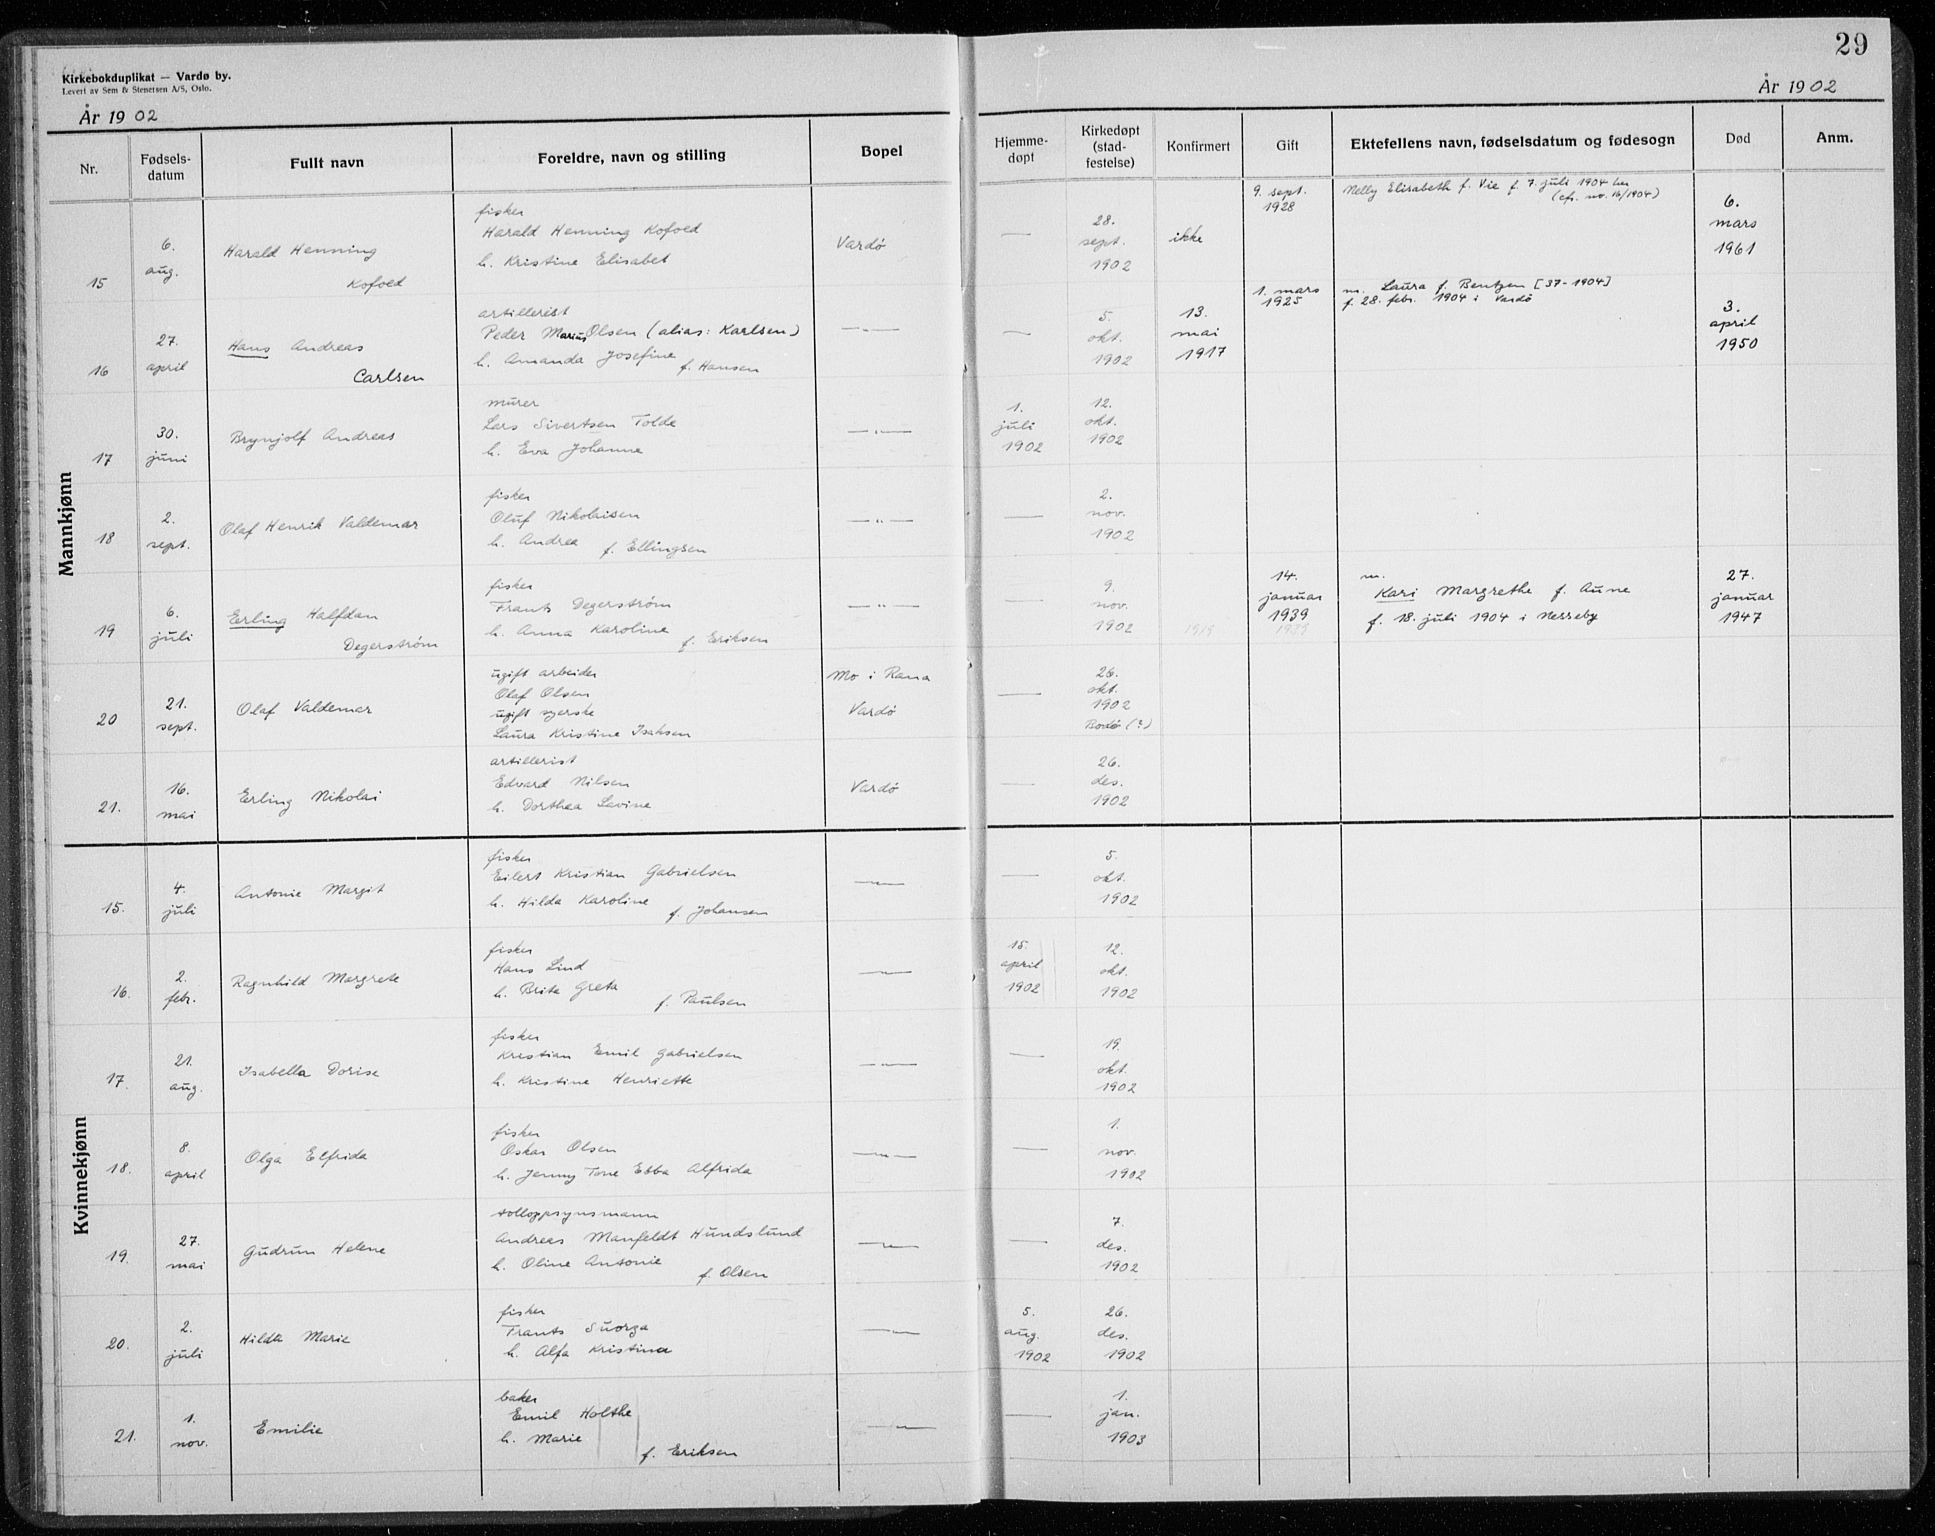 29
Kirkebokduplikat — Vardø by.
Levert av Sem & Stenersen A/S, Oslo.
År 1902
År 1902
Nr.
Fødsels-
datum
Fullt navn
Foreldre, navn og stilling
Bopel
Hjemme-
døpt
Kirkedøpt
(stad-
festelse)
Konfirmert
Gift
Ektefellens navn, fødselsdatum og fødesogn
Død
Anm.
Mannkjønn
15
6.
aug.
Harald Henning
Kofoed
fisker
Harald Henning Kofoed
h. Kristine Elisabet
Vardø
—
28.
sept.
1902
ikke
9. sept.
1928
Nelly Elisabeth f. Vie f. 7. juli 1904 her
(cfr. no. 16/1904)
6.
mars
1961
16
27.
april
Hans Andreas
Carlsen
artillerist
Peder Marius Olsen (alias: Karlsen)
h. Amanda Josefine
f. Hansen
—„—
—
5.
okt.
1902
13.
mai
1917
1. mars
1925
m. Laura f. Bentzen [37-1904]
f. 28. febr. 1904 i Vardö
3.
april
1950
17
30.
juni
Brynjolf Andreas
murer
Lars Sivertsen Tolde
h. Eva Johanne
—„—
1.
juli
1902
12.
okt.
1902
18
2.
sept.
Olaf Henrik Valdemar
fisker
Oluf Nikolaisen
h. Andrea f. Ellingsen
—„—
—
2.
nov.
1902
19
6.
juli
Erling Halfdan
Degerstrøm
fisker
Frants Degerstrøm
h. Anna Karoline
f. Eriksen
—„—
—
9.
nov.
1902
1919
14.
januar
1939
1939
m.
Kari Margrethe f. Aune
f. 18. juli 1904 i Nesseby
27.
januar
1947
20
21.
sept.
Olaf Valdemar
ugift arbeider
Olaf Olsen
ugift syerske
Laura Kristine Isaksen
Mo i Rana
Vardø
—
26.
okt.
1902
Bodø (?)
21.
16.
mai
Erling Nikolai
artillerist
Edvard Nilsen
h. Dorthea Lovine
Vardø
—
26.
des.
1902
Kvinnekjønn
15.
4.
juli
Antonie Margit
fisker
Eilert Kristian Gabrielsen
h. Hilda Karoline
f. Johansen
—„—
—
5.
okt.
1902
16.
2.
febr.
Ragnhild Margrete
fisker
Hans Lind
h. Brita Greta
f. Paulsen
—„—
15.
april
1902
12.
okt.
1902
17.
21.
aug.
Isabella Dorise
fisker
Kristian Emil Gabrielsen
h. Kristine Henriette
—„—
—
19.
okt.
1902
18.
8.
april
Olga Elfrida
fisker
Oskar Olsen
h. Jenny Tone Ebba Alfrida
—„—
—
1.
nov.
1902
19.
27.
mai
Gudrun Helene
tolloppsynsmann
Andreas Manfeldt Hundslund
h. Oline Antonie
f. Olsen
—„—
—
7.
des.
1902
20.
2.
juli
Hilda Marie
fisker
Frants Suorga
h. Alfa Kristina
—„—
5.
aug.
1902
26.
des.
1902
21.
1.
nov.
Emilie
baker
Emil Holthe
h. Marie
f. Eriksen
—„—
—
1.
jan.
1903